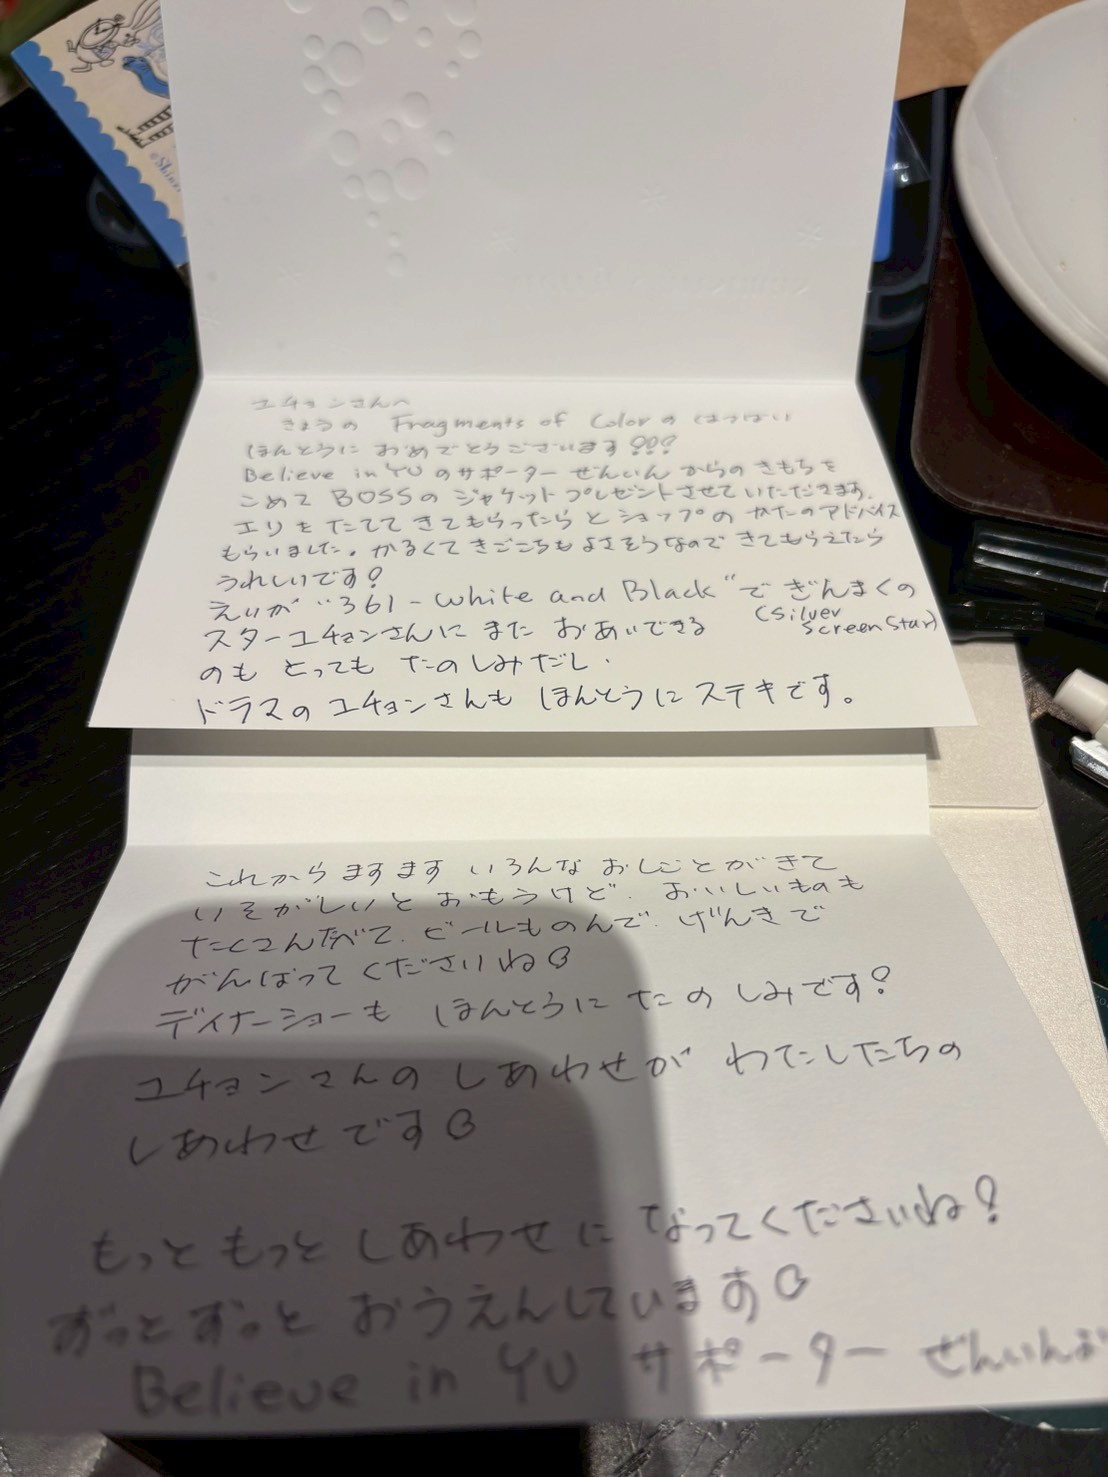 ユチョンさんへ
きょうの Fragments of Colorの はつばい
ほんとうに おめでとうございます!!!
Believe in YUのサポーター ぜんいん からの きもちを
こめて BOSSの ジャケット プレゼントさせていただきます.
エリを たてて きてもらったらと ショップの かたのアドバイス
もらいました。かるくて きごこちも よさそうなので きてもらえたら
うれしいです!
えいが "361 - White and Black" で ぎんまくの
(Silver Screen Star)
スターユチョンさんに また おあいできる
のも とっても たのしみだし.
ドラマの ユチョンさんも ほんとうに ステキです。
これから ますます いろんな おしごとが きて
いそがしいと おもうけど. おいしいものも
たくさんたべて. ビールものんで. げんきで
がんばって くださいね♡
ディナーショーも ほんとうに たの しみです!
ユチョンさんの しあわせが わたしたちの
しあわせです♡
もっと もっと しあわせに なってくださいね!
ずっと ずっと おうえんしています♡
Believe in YU サポーター ぜんいんよ